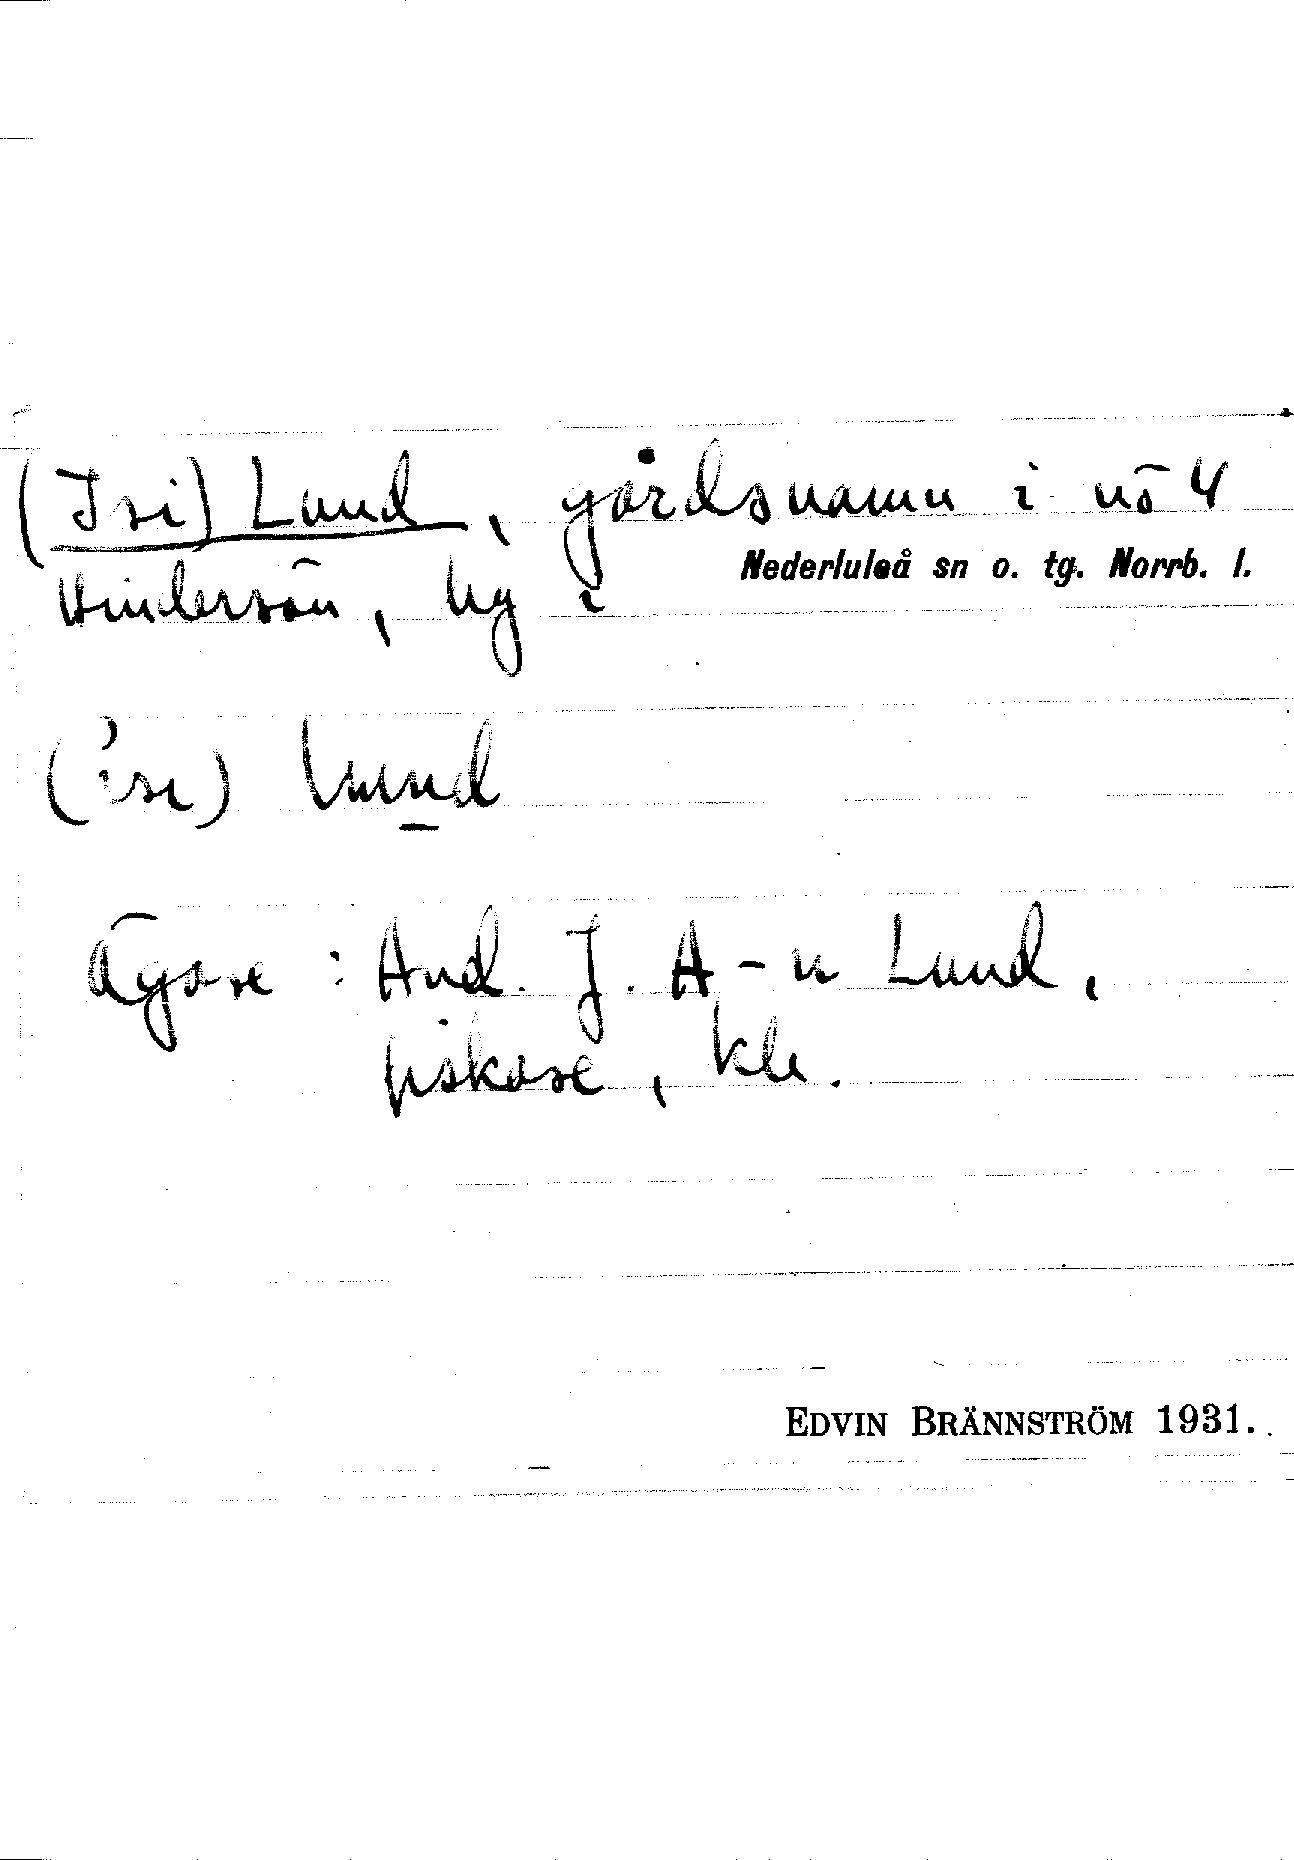 (Isi) Lund, gårdsnamn i nö 4
Nederluleå sn o. tg. Norrb. l.
Hindersön, by i
(isi) Lund
Ägare: And. J. A-n Lund,
fiskare,
EDVIN BRÄNNSTRÖM 1931.